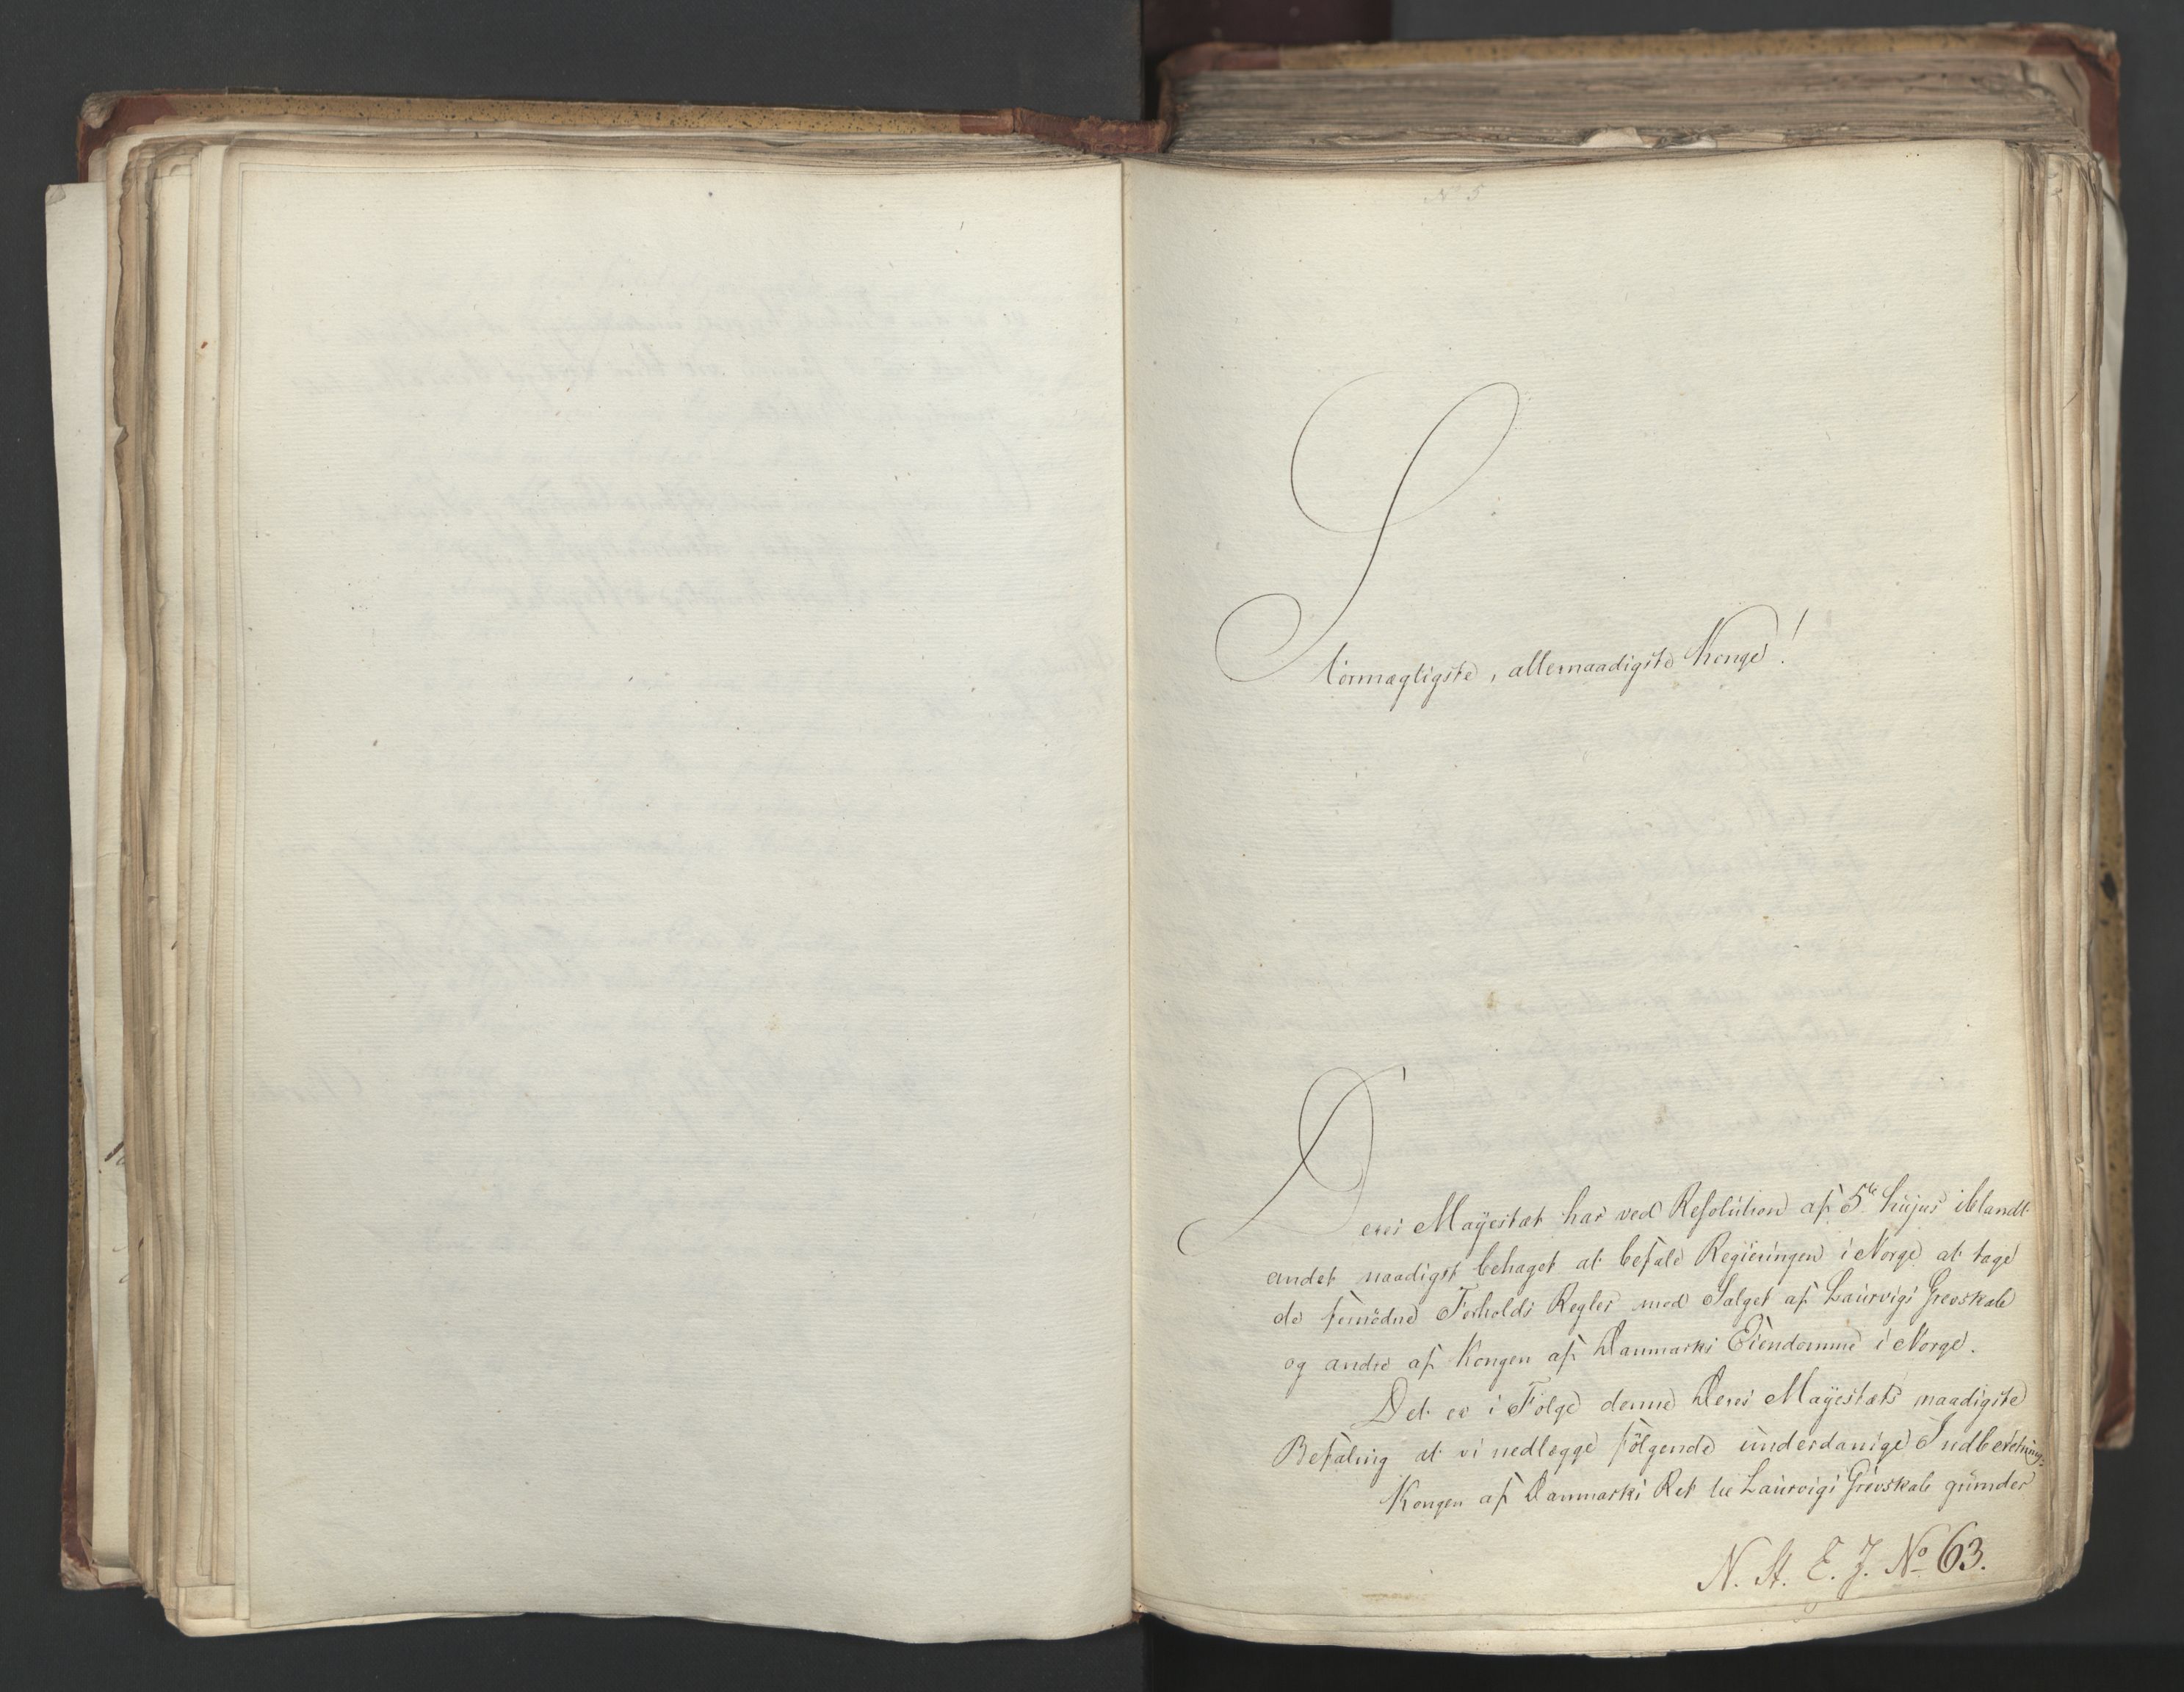 N 5
Stormægtigste, allernaadigste Konge!
Deres Mayestæt har ved Resolution af 5te hujus iblandt
andet naadigst behaget at befale Regieringen i Norge at tage
de fornödne Forholds Regler med Salget af Laurvigs Grevskab
og andre af Kongen af Danmarks Eiendomme i Norge.
Det er i Fölge denne Deres Mayestæts naadigste
Befaling at vi nedlægge fölgende underdanige Indberetning:
Kongen af Danmarks Ret til Laurvigs Grevskab grunder
N. St. E. J. No 63.